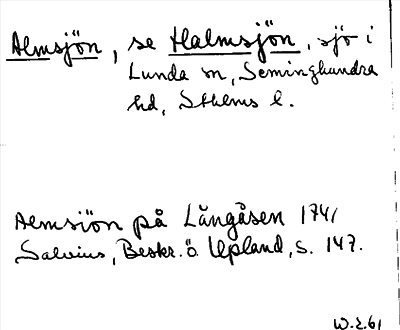 Almsjön, se Halmsjön, sjö i
Lunda sn, Seminghundra
hd, Sthlms l.
Almsiön på Långåsen 1741
Salvius, Beskr. ö. Upland, s. 147.
W.Z.61